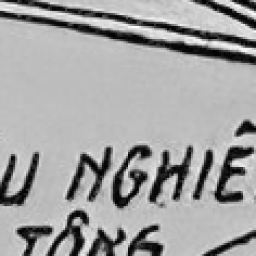 U NGHIÊ
TÔNG